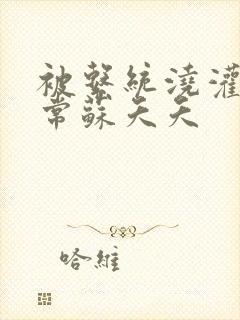 被繫統澆灌
常蘇天天
哈維